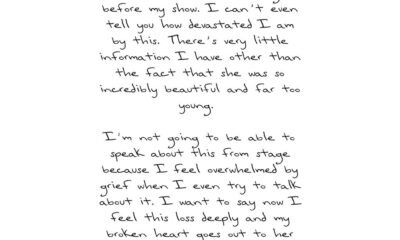 before my show. I can't even
tell you how devastated I am
by this. There's very little
information I have other than
the fact that she was so
incredibly beautiful and far too
young.
I'm not going to be able to
speak about this from stage
because I feel overwhelmed by
grief when I even try to talk
about it. I want to say now I
feel this loss deeply and my
broken heart goes out to her